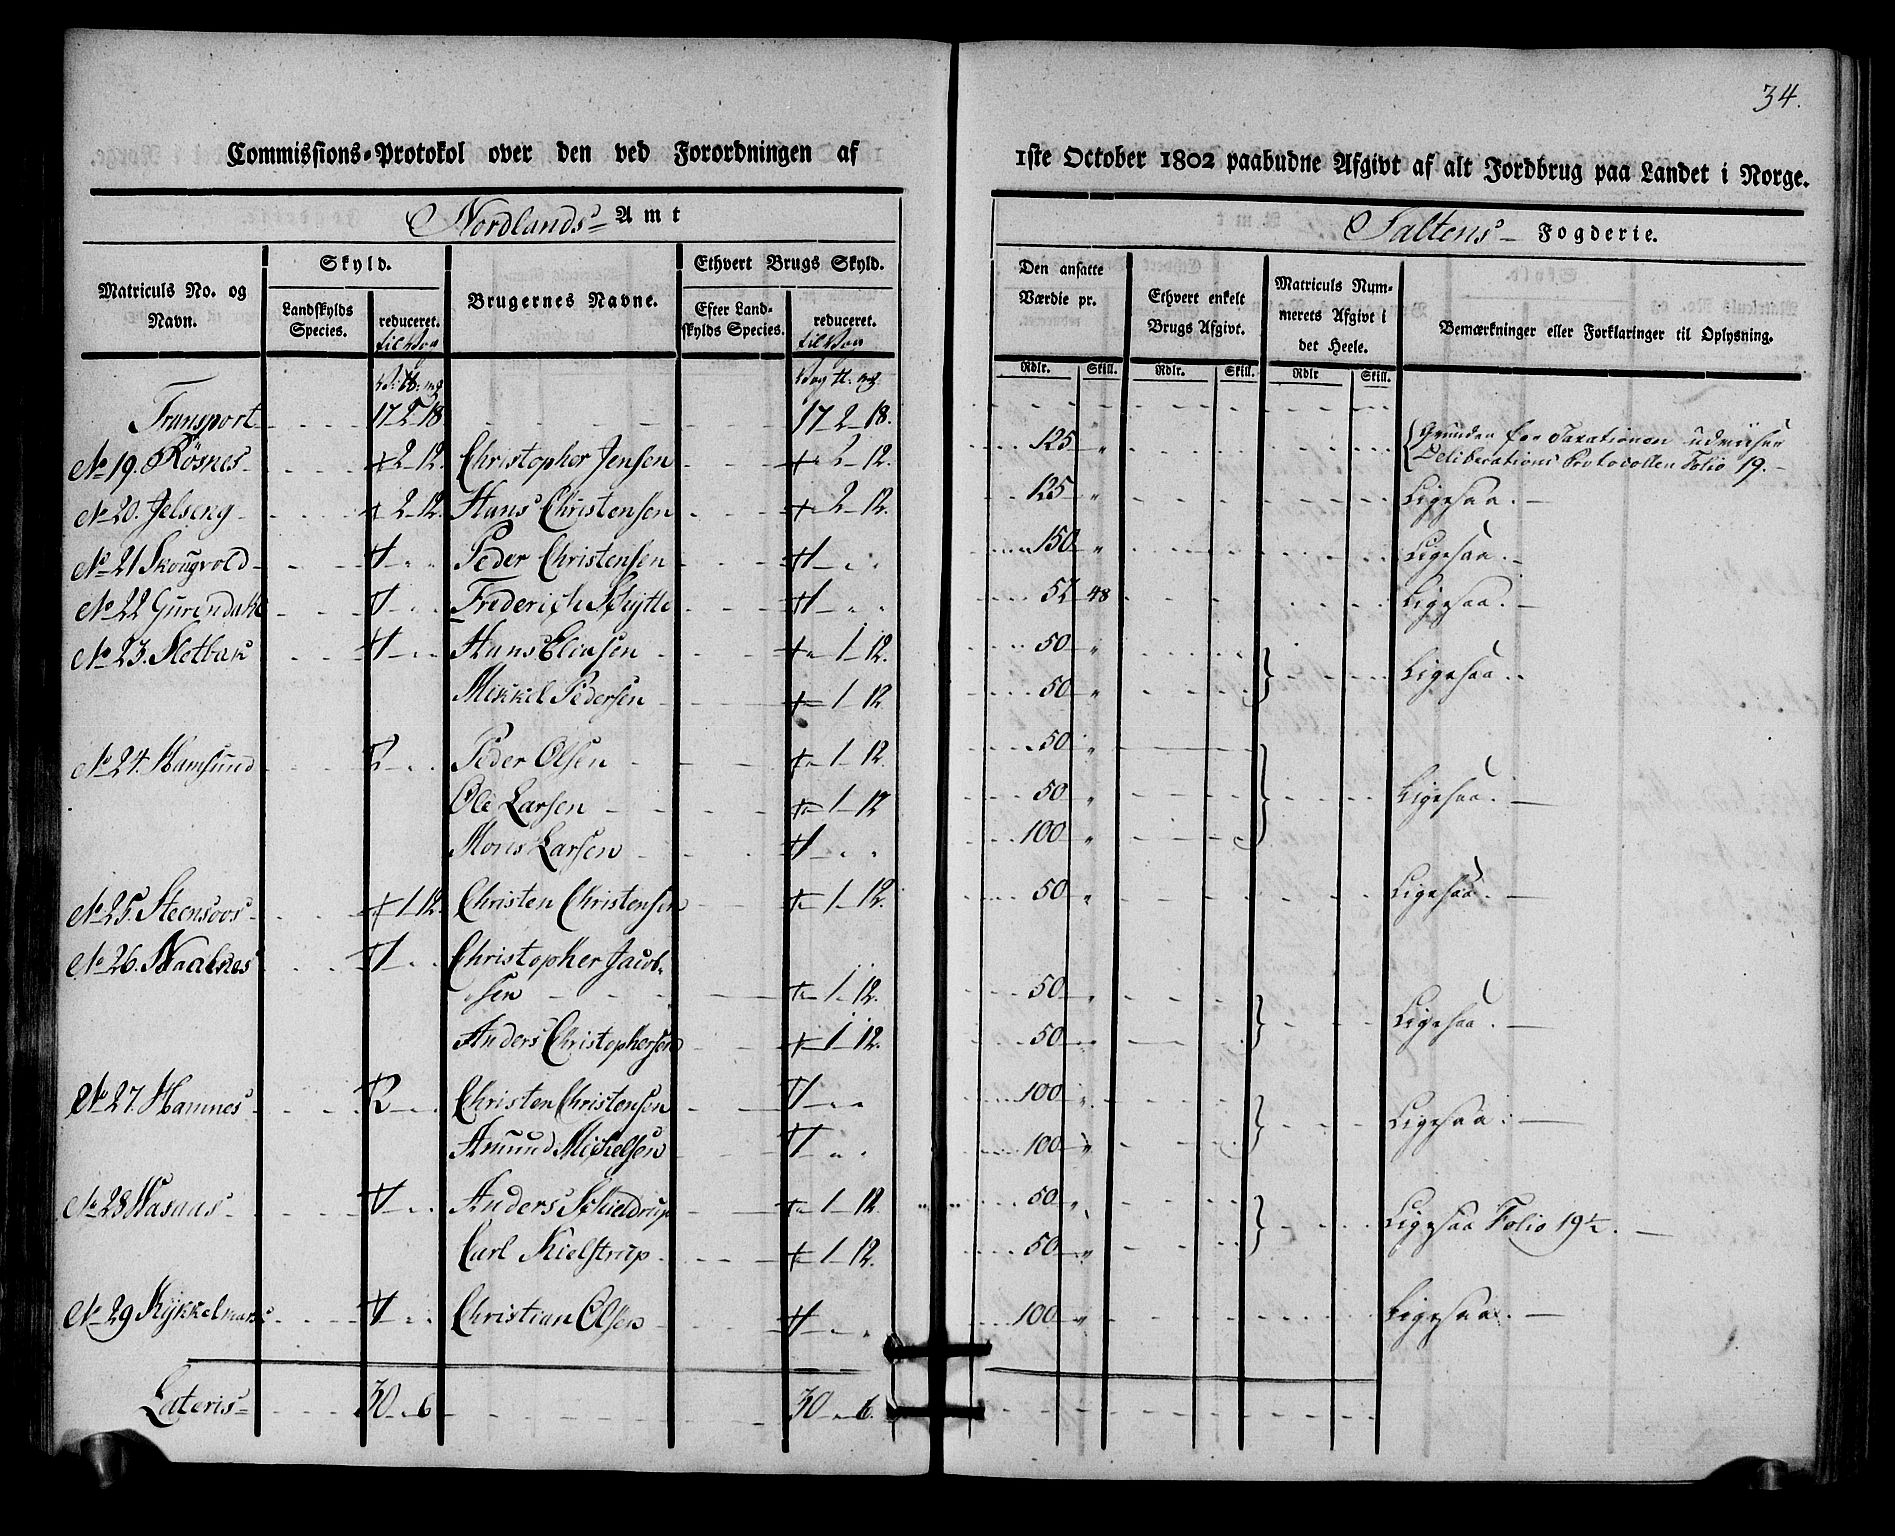 34.
Commissions-Protokol over den ved Forordningen af 1ste October 1802 paabudne Afgivt af alt Jordbrug paa Landet i Norge.
Nordlands Amt Saltens Fogderie.
Matriculs No. og Navn.
Skyld.
Landskylds Species.
reduceret. til Vaa
Brugernes Navne.
Ethvert Brugs Skyld.
Efter Landskylds Species.
reduceret. til Vaa
Den ansatte Værdie pr.
Rdlr. Skill.
Ethvert enkelt Brugs Afgivt.
Rdlr. Skill.
Matriculs Nummerets Afgivt i det Heele.
Rdlr Skill.
Bemærkninger eller Forklaringer til Oplysning.
Transport 17 2 18 17 2 18.
No 19. Rösnes 2 12 Christopher Jensen 2 12. 125 " Grunden for Taxationen udviiser
Deliberations Protocollen Folio 19.
No 20. Jelseng 2 12. Hans Christensen 2 12. 125 " Ligesaa.
No 21 Skougvold 1 Peder Christensen 1 150 " Ligesaa.
No 22 Gurendahl 1 Frederich Schytte 1 52 48 Ligesaa.
No 23. Sletbak 1 Hans Eliasen 1 12. 50 " Ligesaa.
Mikkel Pedersen 1 12 50 "
No 24. Hamsund 2 Peder Olsen 1 12. 50 "
Ole Larsen 1 12 50 " Ligesaa.
Mons Larsen 1 100 "
No 25. Steensoos 1 12. Christen Christensen 1 12. 50 " Ligesaa.
No 26. Naalnes 1 Christopher Jacob-
sen 1 12. 50 " Ligesaa.
Anders Christophersen 1 12. 50 "
No 27. Hamnes 2 Christen Christensen 1 100 " Ligesaa.
Amund Michelsen 1 100 "
No 28 Hasaas 1 Anders Schieldrup 1 12. 50 " Ligesaa Folio 19½.
Carl Kielstrup 1 12. 50 "
No 29 1 Christian Olsen 1 100 " Ligesaa.
Lateris 30 " 6 30 " 6.